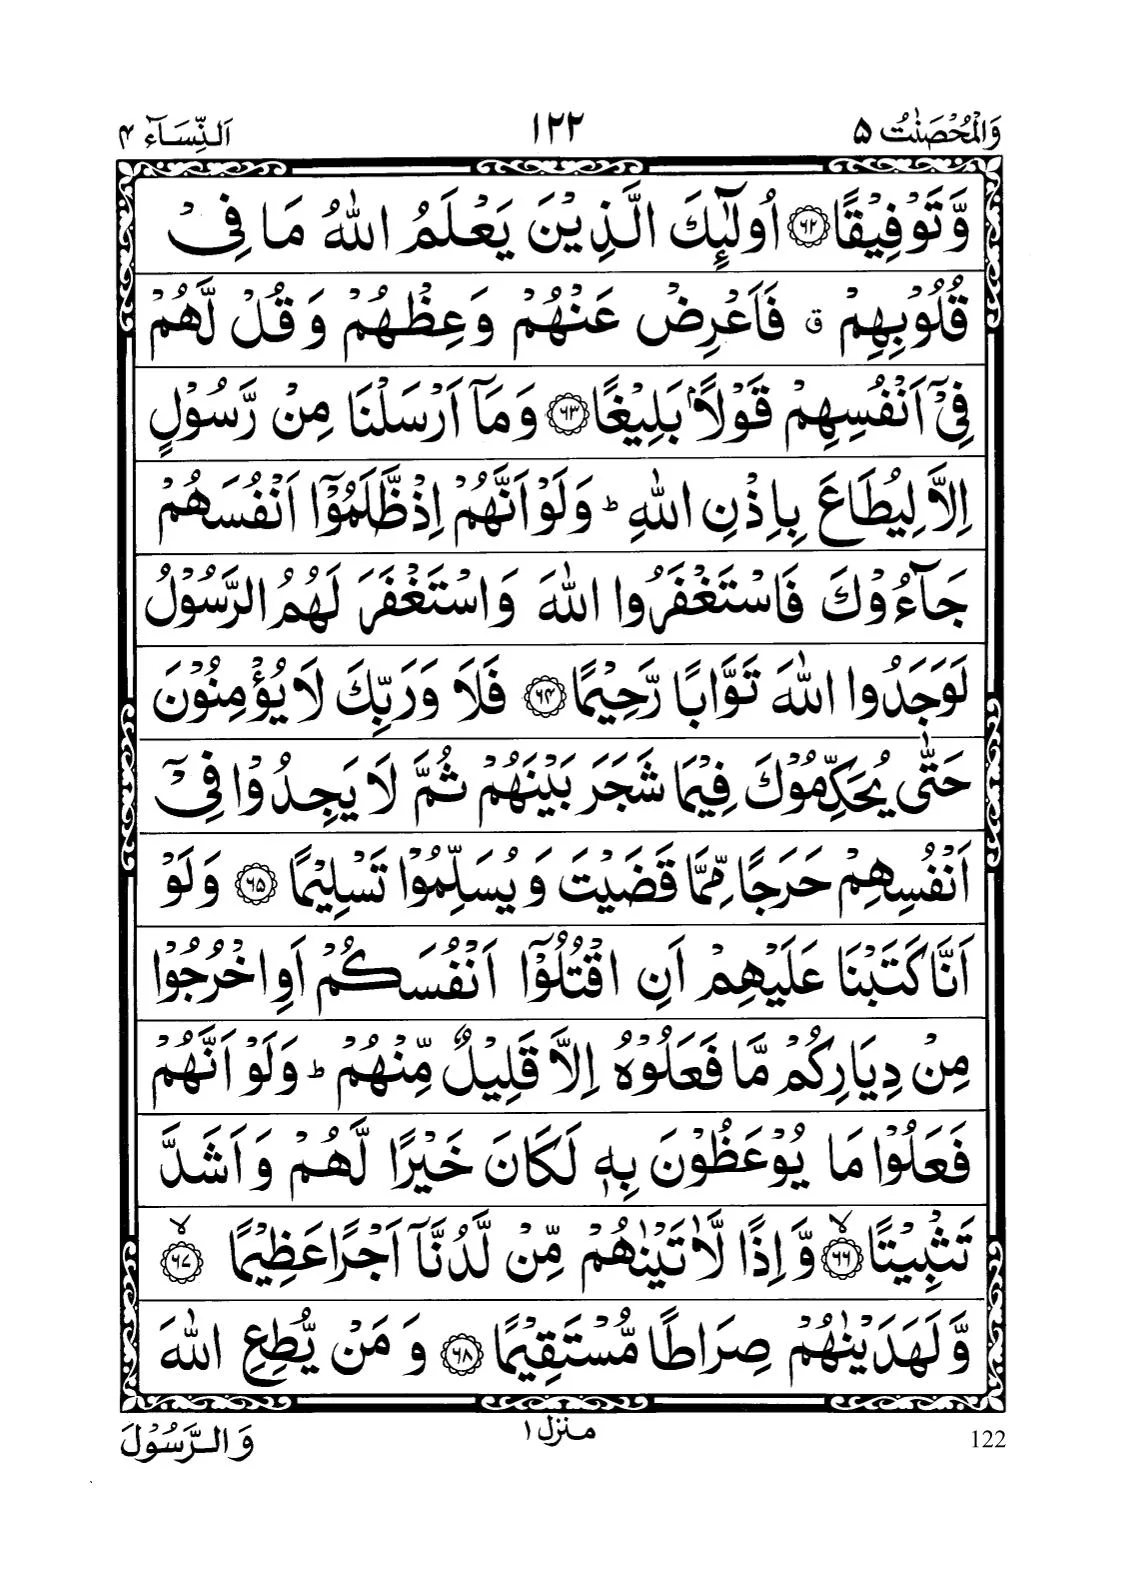 وَالْمُحْصَنٰتُ ۵ ۱۲۲ اَلنِّسَآء ۴
وَّتَوْفِيْقًا ﴿۶۲﴾ اُولٰٓئِكَ الَّذِيْنَ يَعْلَمُ اللّٰهُ مَا فِيْ
قُلُوْبِهِمْ ۗ ق فَاَعْرِضْ عَنْهُمْ وَعِظْهُمْ وَقُلْ لَّهُمْ
فِيْٓ اَنْفُسِهِمْ قَوْلًاۢ بَلِيْغًا ﴿۶۳﴾ وَمَآ اَرْسَلْنَا مِنْ رَّسُوْلٍ
اِلَّا لِيُطَاعَ بِاِذْنِ اللّٰهِ ؕ وَلَوْ اَنَّهُمْ اِذْ ظَّلَمُوْٓا اَنْفُسَهُمْ
جَآءُوْكَ فَاسْتَغْفَرُوا اللّٰهَ وَاسْتَغْفَرَ لَهُمُ الرَّسُوْلُ
لَوَجَدُوا اللّٰهَ تَوَّابًا رَّحِيْمًا ﴿۶۴﴾ فَلَا وَرَبِّكَ لَا يُؤْمِنُوْنَ
حَتّٰى يُحَكِّمُوْكَ فِيْمَا شَجَرَ بَيْنَهُمْ ثُمَّ لَا يَجِدُوْا فِيْٓ
اَنْفُسِهِمْ حَرَجًا مِّمَّا قَضَيْتَ وَيُسَلِّمُوْا تَسْلِيْمًا ﴿۶۵﴾ وَلَوْ
اَنَّا كَتَبْنَا عَلَيْهِمْ اَنِ اقْتُلُوْٓا اَنْفُسَكُمْ اَوِ اخْرُجُوْا
مِنْ دِيَارِكُمْ مَّا فَعَلُوْهُ اِلَّا قَلِيْلٌ مِّنْهُمْ ؕ وَلَوْ اَنَّهُمْ
فَعَلُوْا مَا يُوْعَظُوْنَ بِهٖ لَكَانَ خَيْرًا لَّهُمْ وَاَشَدَّ
تَثْبِيْتًا ۙ﴿۶۶﴾ وَّاِذًا لَّاٰتَيْنٰهُمْ مِّنْ لَّدُنَّآ اَجْرًا عَظِيْمًا ۙ﴿۶۷﴾
وَّلَهَدَيْنٰهُمْ صِرَاطًا مُّسْتَقِيْمًا ﴿۶۸﴾ وَمَنْ يُّطِعِ اللّٰهَ
122 منزل ۱ وَالرَّسُوْلَ